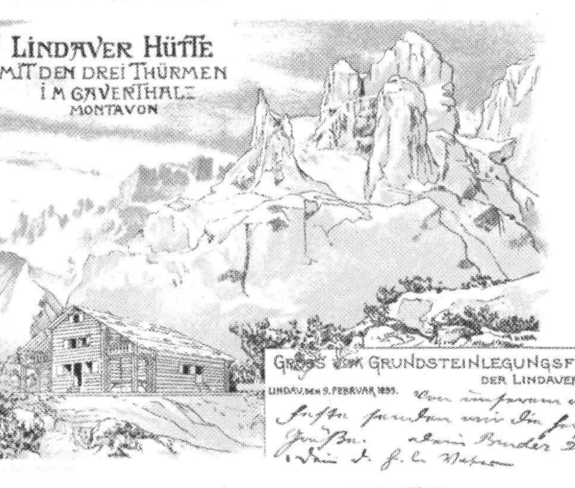 LINDAVER HÜTTE
MIT DEN DREI THÜRMEN
IM GAVERTHAL
MONTAVON
GRUSS VOM GRUNDSTEINLEGUNGSF
DER LINDAVER
LINDAV, DEN 9. FEBRVAR 1899. Von unserem
Feste senden wir die
Grüße. dein Bruder